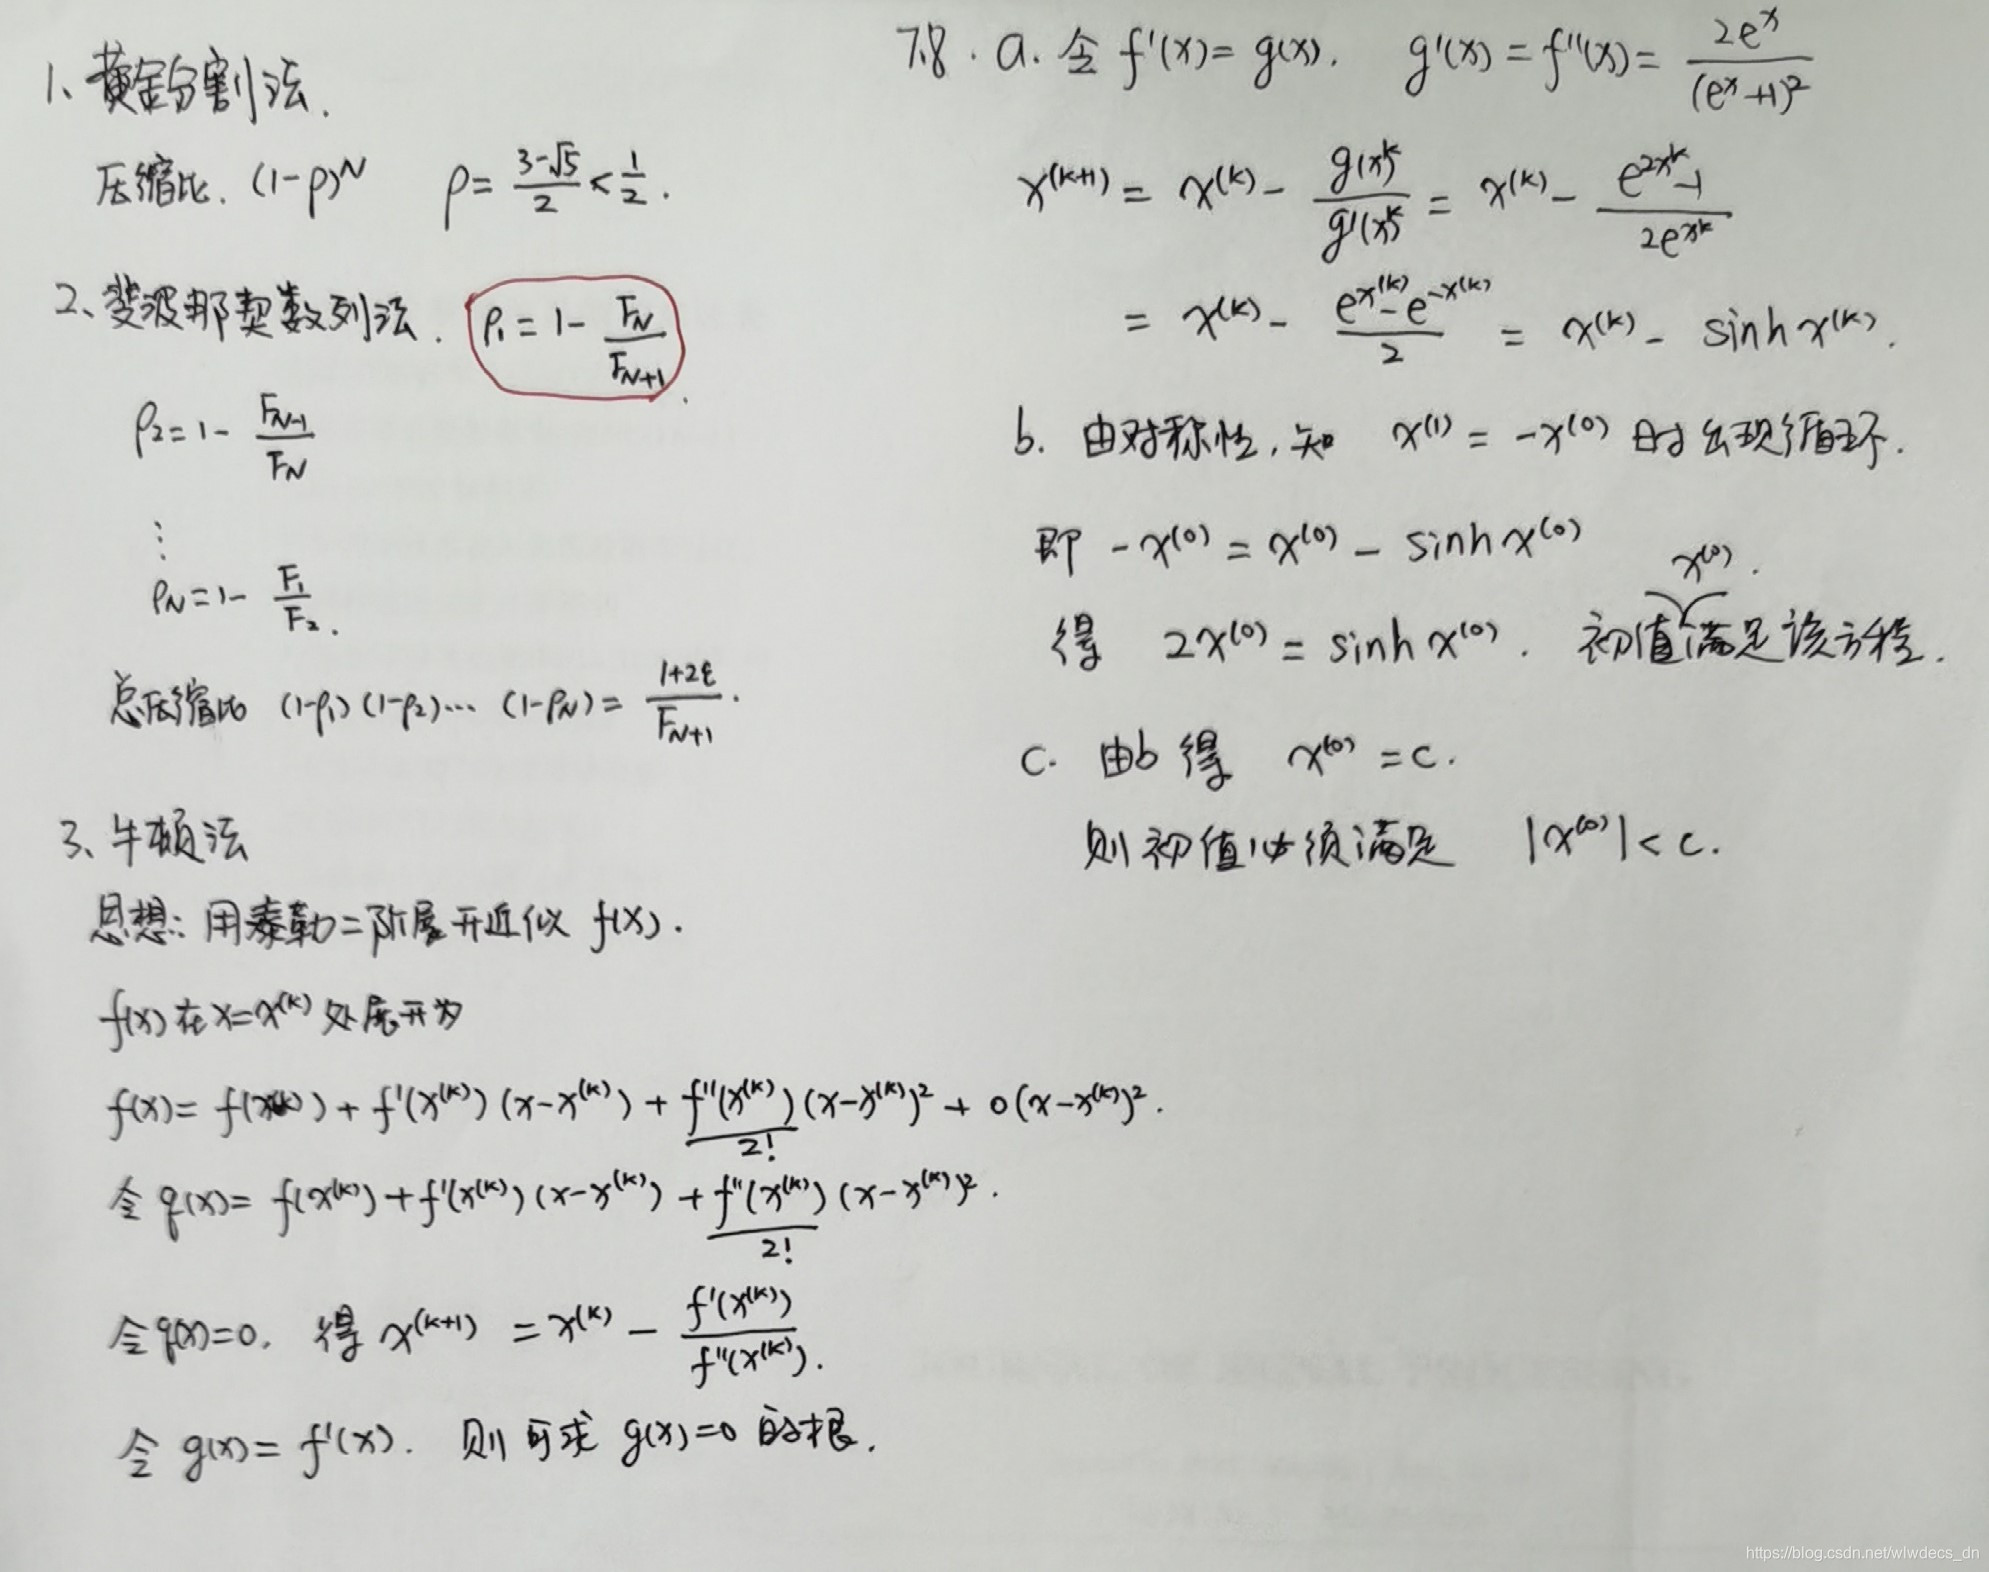 1、黄金分割法.
压缩比. (1-ρ)^N ρ= (3-√5)/2 < 1/2 .
2、斐波那契数列法. ρ₁ = 1- F_N/F_{N+1} .
ρ₂=1- F_{N-1}/F_N
⋮
ρ_N=1- F₁/F₂ .
总压缩比 (1-ρ₁)(1-ρ₂)⋯ (1-ρ_N)= (1+2ε)/F_{N+1} .
3、牛顿法
思想: 用泰勒二阶展开近似 f(x).
f(x)在x=x^(k)处展开为
f(x)= f(x^(k))+ f'(x^(k))(x-x^(k)) + f''(x^(k))/2! (x-x^(k))² + o(x-x^(k))².
令 q(x)= f(x^(k))+f'(x^(k))(x-x^(k)) + f''(x^(k))/2! (x-x^(k))².
令q(x)=0. 得 x^(k+1) = x^(k) - f'(x^(k))/f''(x^(k)).
令 g(x)= f'(x). 则可求 g(x)=0 的根.
7.8. a. 令 f'(x)= g(x). g'(x) = f''(x)= 2e^x/(e^x+1)²
x^(k+1) = x^(k) - g(x)^k/g'(x)^k = x^(k) - (e^{2x^k}-1)/(2e^{x^k})
= x^(k) - (e^{x^(k)}-e^{-x^(k)})/2 = x^(k) - sinh x^(k).
b. 由对称性,知 x^(1) = -x^(0) 时出现循环.
即 -x^(0) = x^(0) - sinh x^(0)
得 2x^(0) = sinh x^(0). 初值x^(0)满足该方程.
c. 由b得 x^(0) =c.
则初值必须满足 |x^(0)|< c.
https://blog.csdn.net/wlwdecs_dn